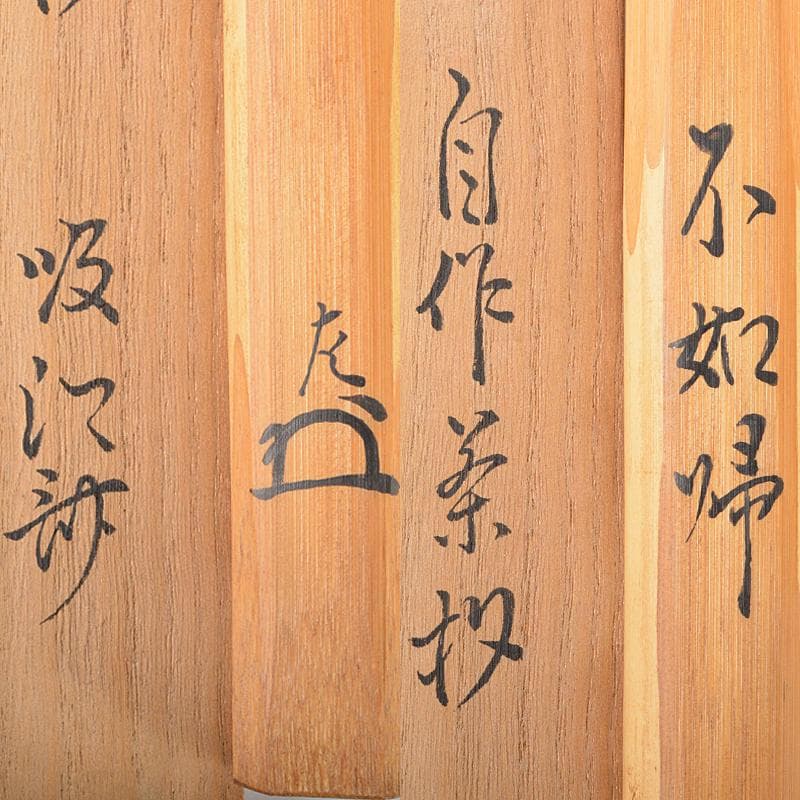 不如帰
自作茶杓
左
吸江斎